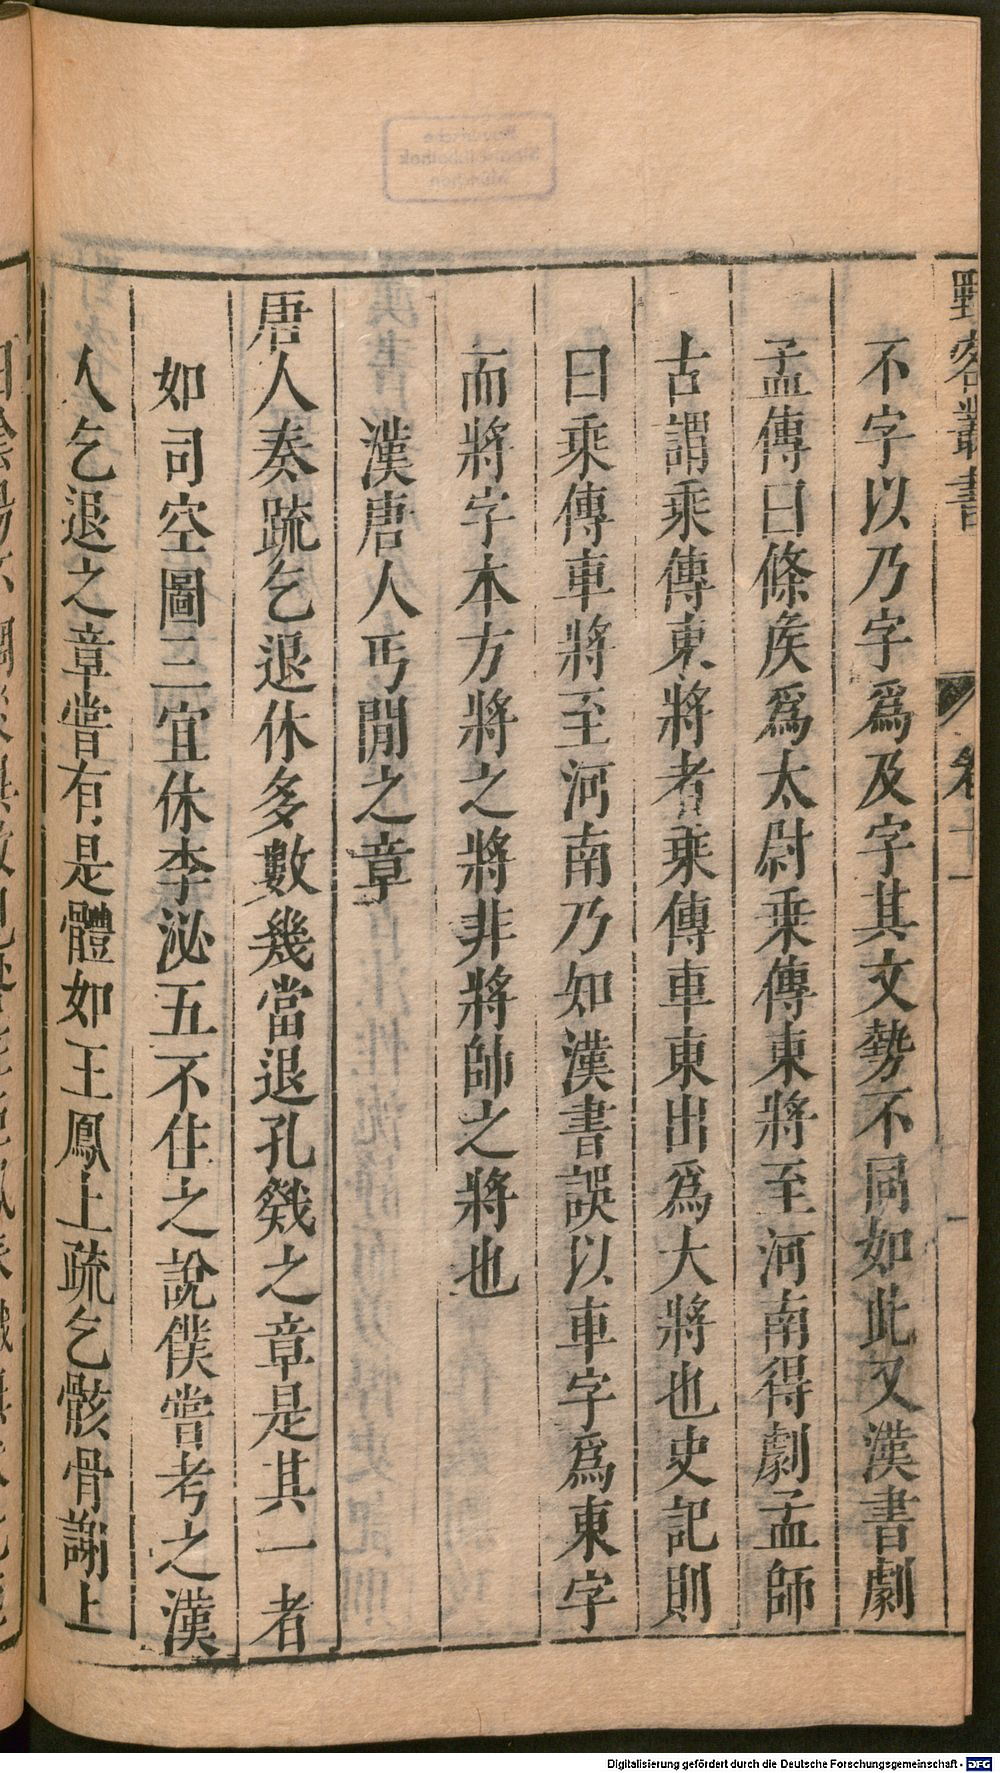 野客叢書 卷十
不字以乃字爲及字其文勢不同如此又漢書劇
孟傳曰條矦爲太尉乘傳東將至河南得劇孟師
古謂乘傳東將者乘傳車東出爲大將也史記則
曰乘傳車將至河南乃如漢書誤以車字爲東字
而將字本方將之將非將帥之將也
漢唐人丐閒之章
唐人奏疏乞退休多數幾當退孔戣之章是其一者
如司空圖三宜休李泌五不住之說僕嘗考之漢
人乞退之章嘗有是體如王鳳上疏乞骸骨謝上
Digitalisierung gefördert durch die Deutsche Forschungsgemeinschaft - DFG